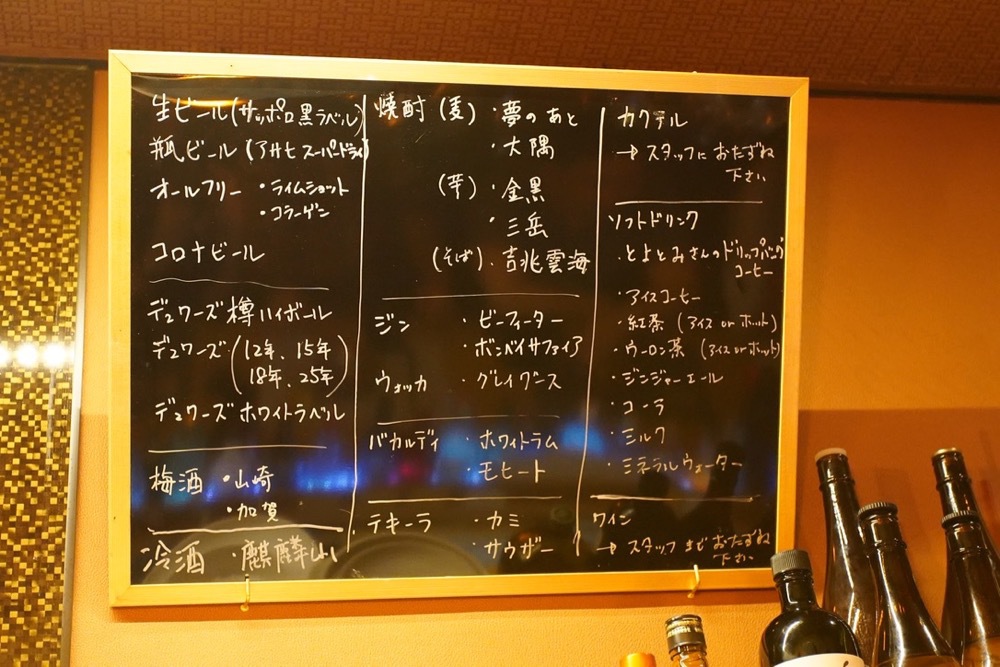 生ビール(サッポロ黒ラベル)
瓶ビール(アサヒスーパードライ)
オールフリー ・ライムショット
・コラーゲン
コロナビール
デュワーズ樽ハイボール
デュワーズ(12年、15年
18年、25年)
デュワーズホワイトラベル
梅酒 ・山崎
・加賀
冷酒 ・麒麟山
焼酎(麦)・夢のあと
・大隅
(芋)・金黒
・三岳
(そば)・吉兆雲海
ジン ・ビーフィーター
・ボンベイサファイア
ウォッカ ・グレイグース
バカルディ ・ホワイトラム
・モヒート
テキーラ ・カミ
・サウザー
カクテル
→スタッフにおたずね
下さい
ソフトドリンク
・とよとみさんのドリップバッグ
コーヒー
・アイスコーヒー
・紅茶(アイス or ホット)
・ウーロン茶(アイス or ホット)
・ジンジャーエール
・コーラ
・ミルク
・ミネラルウォーター
ワイン
→スタッフまでおたずね
下さい